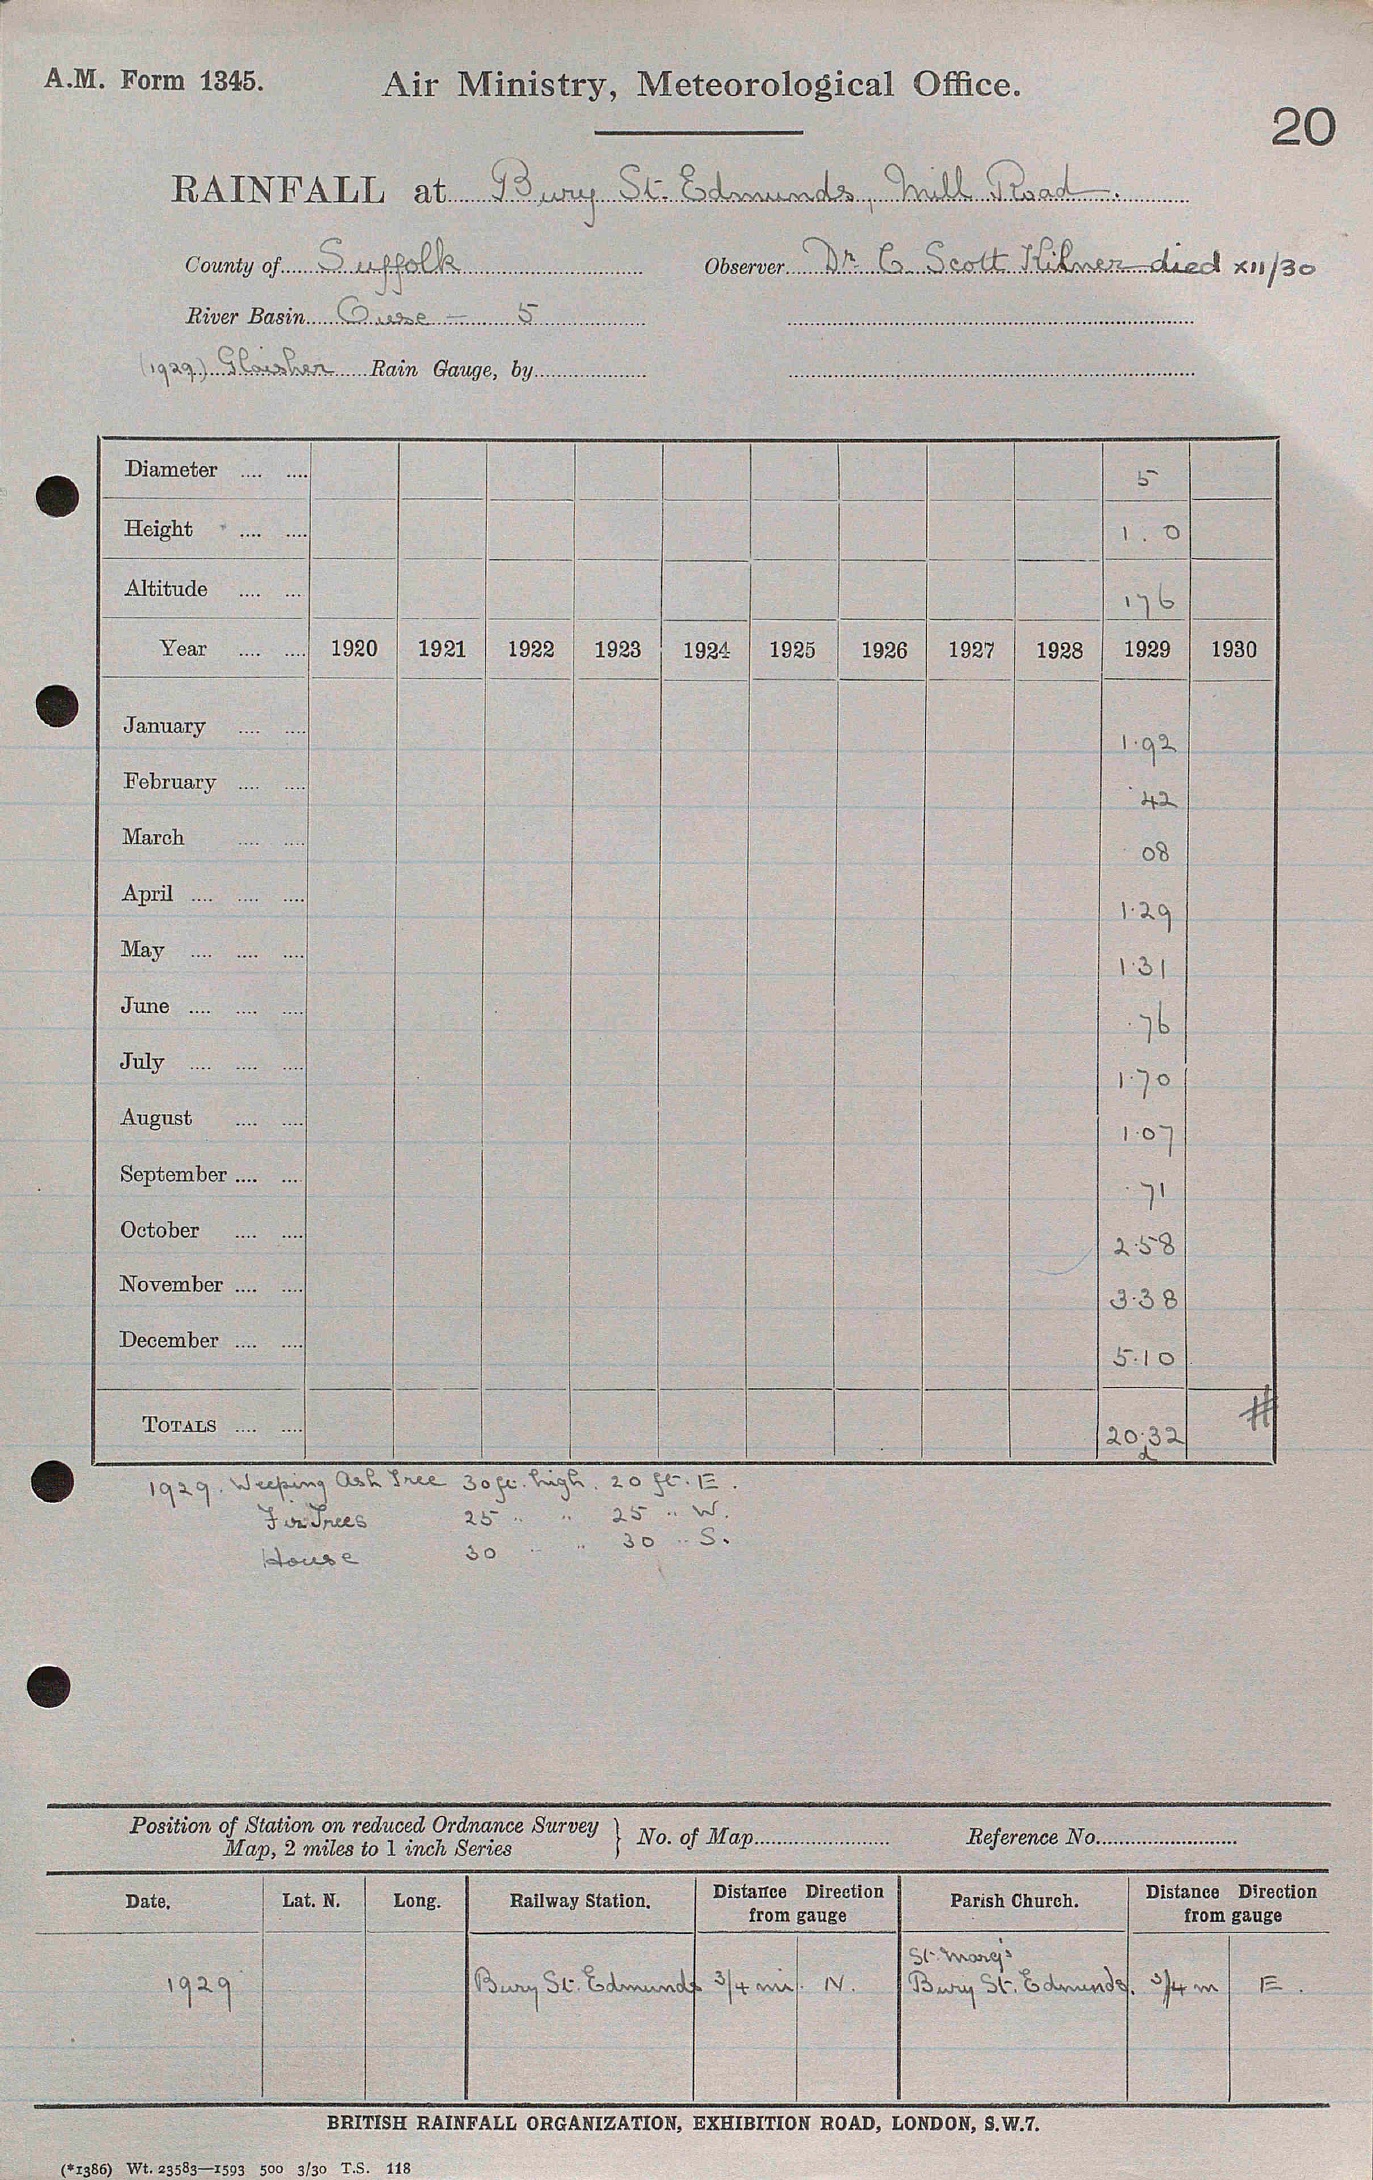 A.M. Form 1345.
Air Ministry, Meteorological Office.
20
RAINFALL at Bury St. Edmunds, Mill Road.
County of Suffolk Observer Dr C Scott Kilner died XII/30
River Basin Ouse — 5
(1929) Glaisher Rain Gauge, by
Diameter .... .... 5
Height .... .... 1.0
Altitude .... ... 176
Year .... .... 1920 1921 1922 1923 1924 1925 1926 1927 1928 1929 1930
January .... .... 1.92
February .... .... .42
March .... .... 08
April .... .... .... 1.29
May .... .... .... 1.31
June .... .... .... .76
July .... .... .... 1.70
August .... .... 1.07
September .... .... .71
October .... .... 2.58
November .... .... 3.38
December .... .... 5.10
TOTALS .... .... 20.32 #
d
1929. Weeping Ash Tree 30 ft. high. 20 ft. E.
Fir Trees 25 " " 25 " W.
House 30 " " 30 " S.
Position of Station on reduced Ordnance Survey
Map, 2 miles to 1 inch Series } No. of Map Reference No.
Date. Lat. N. Long. Railway Station. Distance Direction from gauge Parish Church. Distance Direction from gauge
St. Mary's
1929 Bury St. Edmunds 3/4 mi. N. Bury St. Edmunds. 3/4 m E.
BRITISH RAINFALL ORGANIZATION, EXHIBITION ROAD, LONDON, S.W.7.
(*1386) Wt. 23583—1593 500 3/30 T.S. 118